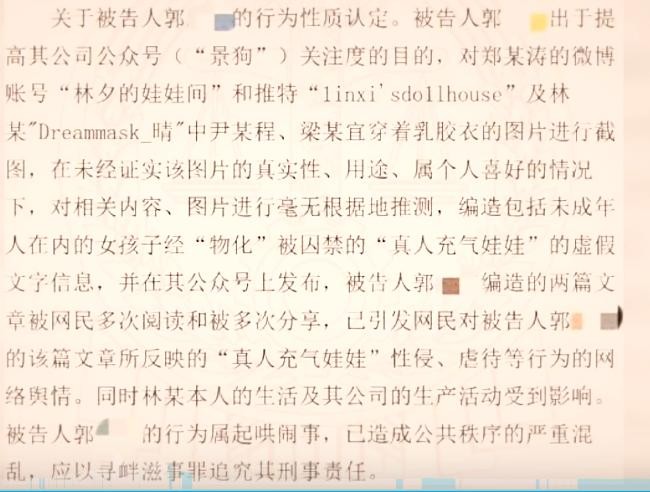 关于被告人郭 的行为性质认定。被告人郭 出于提
高其公司公众号（“景狗”）关注度的目的，对郑某涛的微博
账号“林夕的娃娃间”和推特“linxi'sdollhouse”及林
某"Dreammask_晴"中尹某程、梁某宜穿着乳胶衣的图片进行截
图，在未经证实该图片的真实性、用途、属个人喜好的情况
下，对相关内容、图片进行毫无根据地推测，编造包括未成年
人在内的女孩子经“物化”被囚禁的“真人充气娃娃”的虚假
文字信息，并在其公众号上发布，被告人郭 编造的两篇文
章被网民多次阅读和被多次分享，已引发网民对被告人郭
的该篇文章所反映的“真人充气娃娃”性侵、虐待等行为的网
络舆情。同时林某本人的生活及其公司的生产活动受到影响。
被告人郭 的行为属起哄闹事，已造成公共秩序的严重混
乱，应以寻衅滋事罪追究其刑事责任。